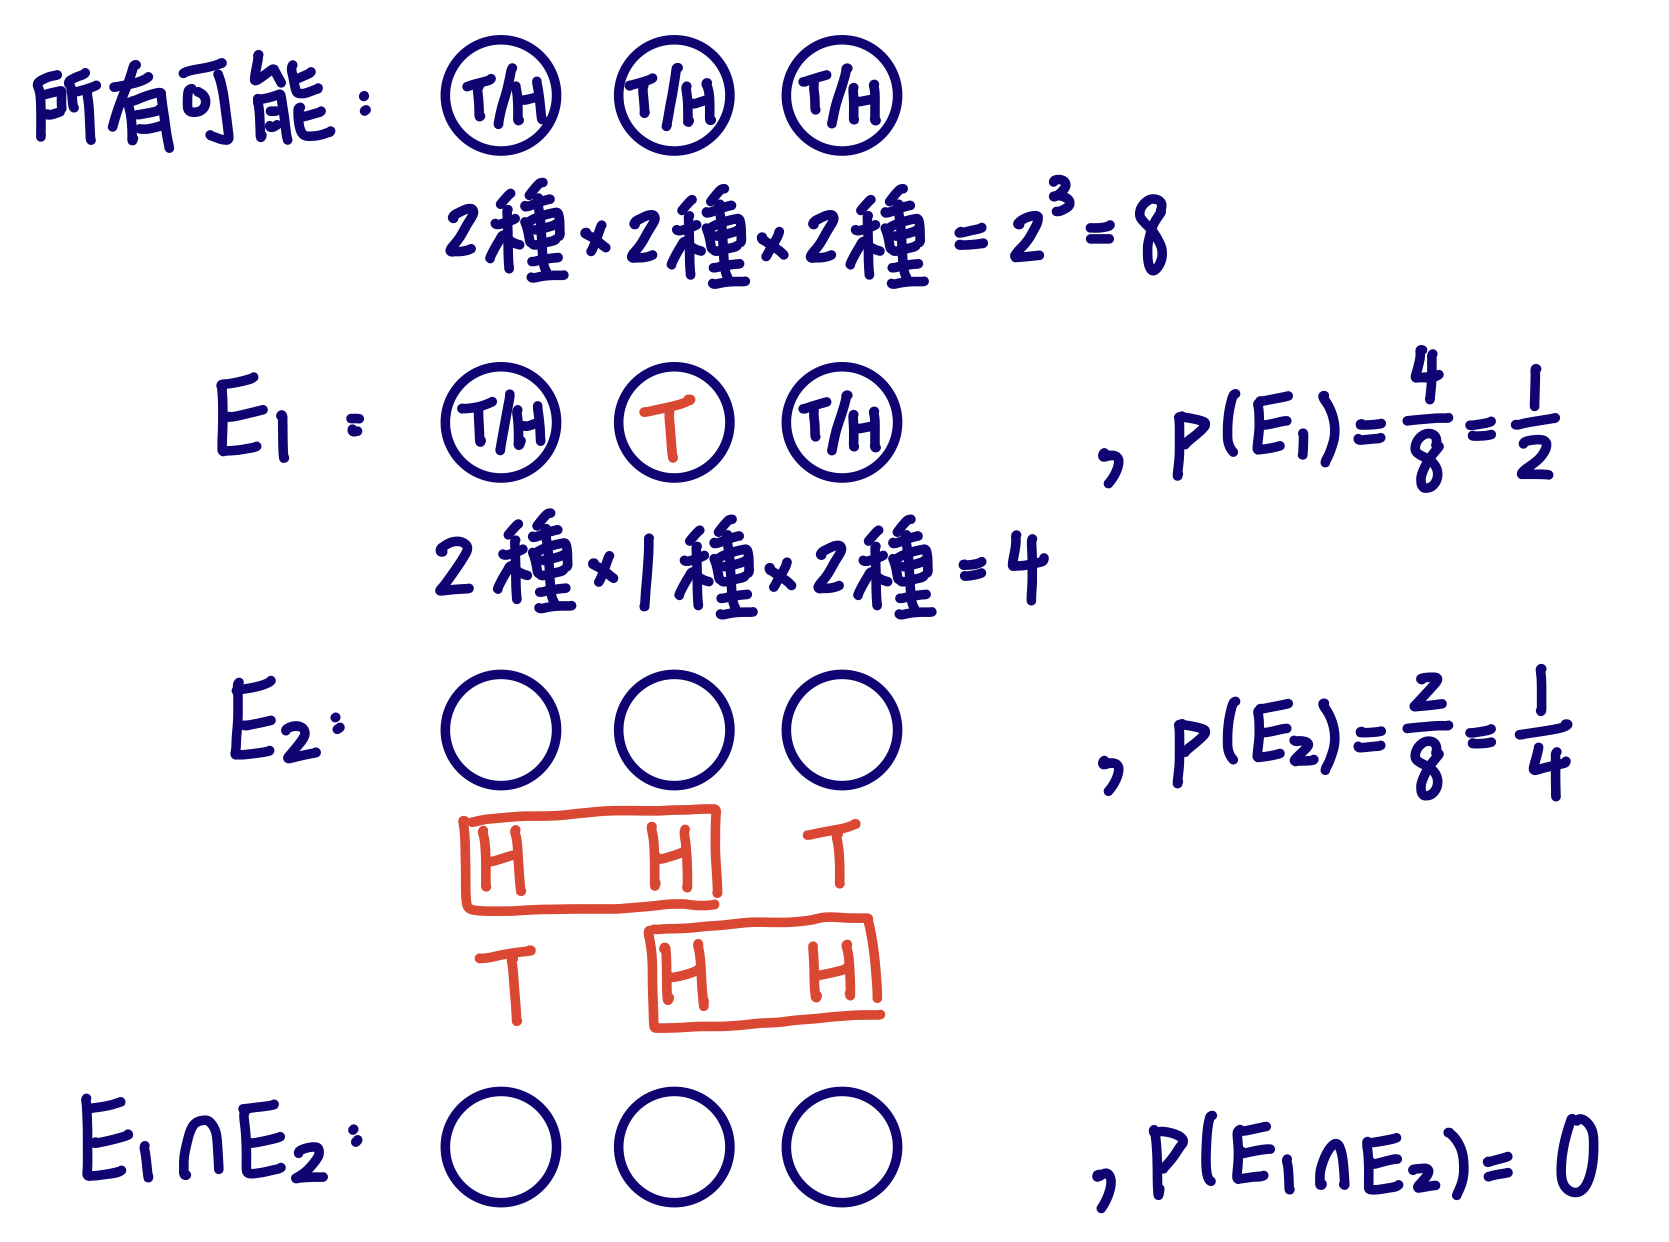 所有可能: T/H T/H T/H
2種×2種×2種=2³=8
E₁: T/H T T/H , P(E₁)=4/8=1/2
2種×1種×2種=4
E₂: , P(E₂)=2/8=1/4
H H T
T H H
E₁∩E₂: , P(E₁∩E₂)=0